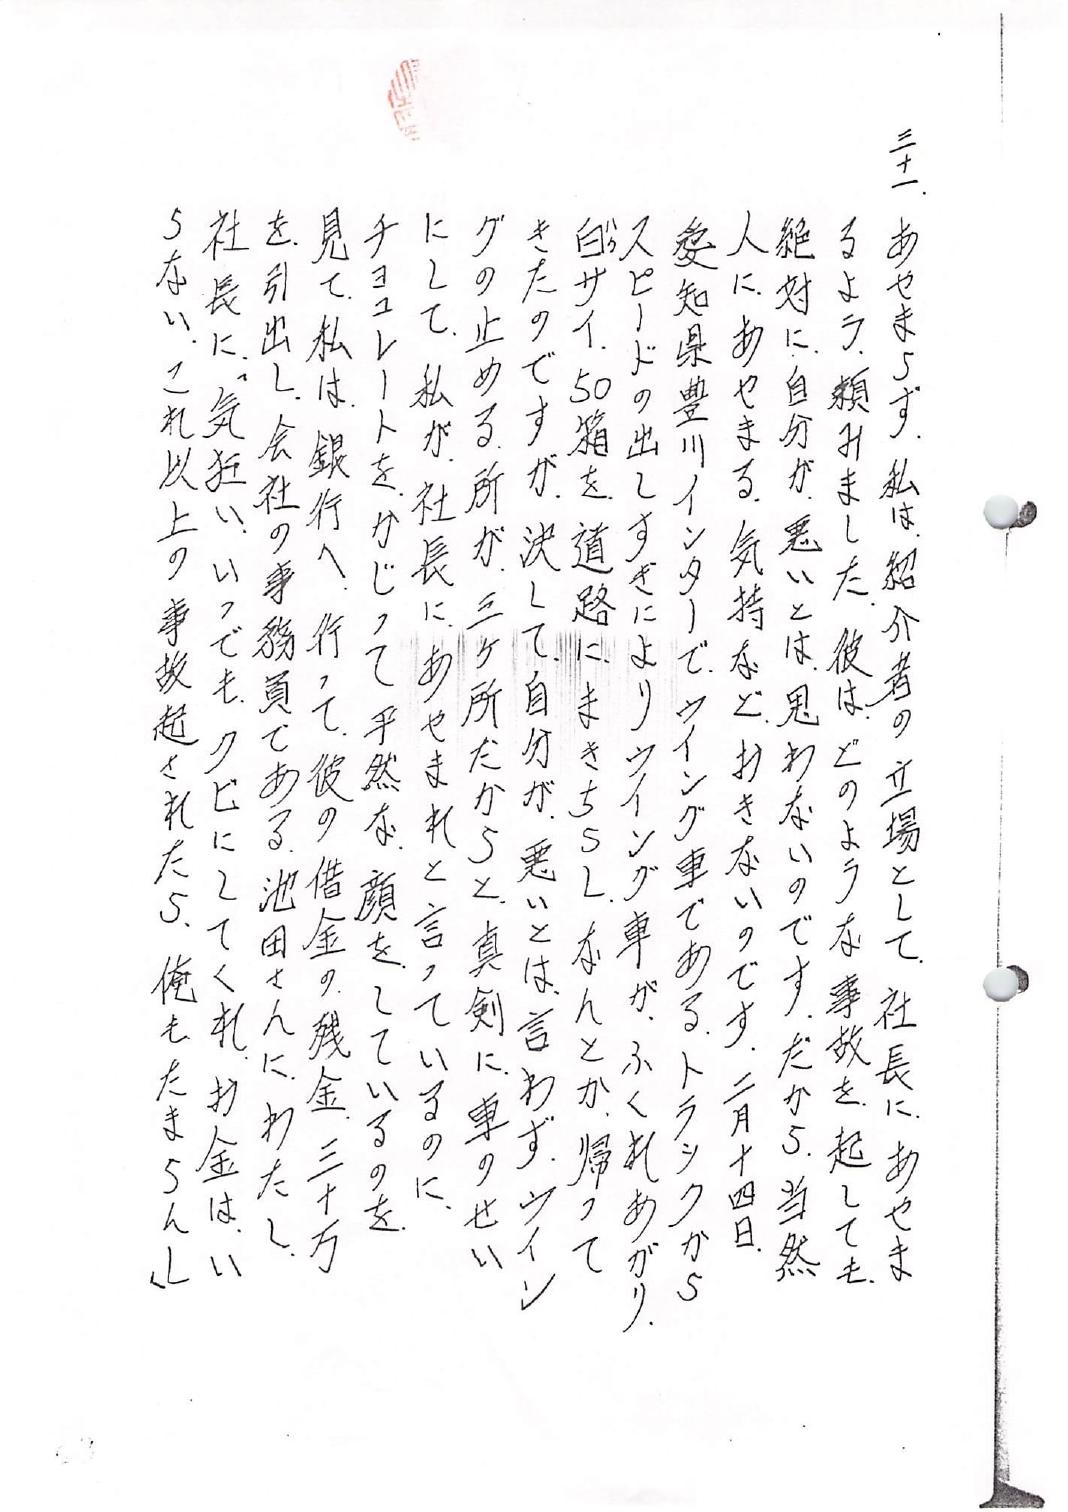 三十一、
あやまらず、私は、紹介者の立場として、社長に、あやま
るよう、頼みました、彼は、どのような事故を、起しても、
絶対に、自分が、悪いとは、思わないのです、だから、当然
人に、あやまる、気持など、おきないのです、二月十四日、
愛知県豊川インターで、ウイング車である、トラックから
スピードの出しすぎによりウイング車が、ふくれあがり、
白サイ、50箱を、道路に、まきちらし、なんとか、帰って
きたのですが、決して、自分が、悪いとは、言わず、ウイン
グの止める、所が、三ヶ所だからと、真剣に、車のせい
にして、私が、社長に、あやまれと言っているのに、
チョコレートを、かじって平然な、顔を、しているのを、
見て、私は、銀行へ、行って、彼の借金の、残金、三十万
を、引出し、会社の事務員である、池田さんに、わたし、
社長に、“気狂い、いつでも、クビにしてくれ、お金は、い
らない、これ以上の事故起されたら、俺もたまらん」